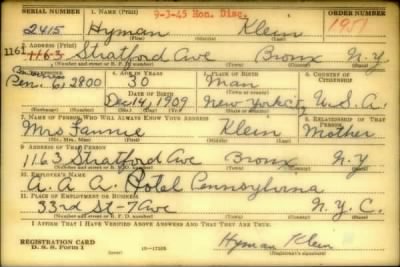 SERIAL NUMBER 1. NAME (Print) 9-3-45 Hon. Disc. ORDER NUMBER
2415 Hyman Klein 1951
(First) (Middle) (Last)
2. ADDRESS (Print)
1161 1163 Stratford Ave Bronx N.Y.
(Number and street or R. F. D. number) (Town) (County) (State)
3. TELEPHONE 4. AGE IN YEARS 5. PLACE OF BIRTH 6. COUNTRY OF CITIZENSHIP
Pen. 6, 2800 30 Man
DATE OF BIRTH
Dec 14, 1909 New York City U.S.A.
(Exchange) (Number) (Mo.) (Day) (Yr.) (State or country)
7. NAME OF PERSON WHO WILL ALWAYS KNOW YOUR ADDRESS 8. RELATIONSHIP OF THAT PERSON
Mrs. Fannie Klein Mother
(Mr., Mrs., Miss) (First) (Middle) (Last)
9. ADDRESS OF THAT PERSON
1163 Stratford Ave Bronx N.Y
(Number and street or R. F. D. number) (Town) (County) (State)
10. EMPLOYER'S NAME
A.A.A. Hotel Pennsylvina
11. PLACE OF EMPLOYMENT OR BUSINESS
33rd St-7 Ave N.Y.C.
(Number and street or R. F. D. number) (Town) (County) (State)
I AFFIRM THAT I HAVE VERIFIED ABOVE ANSWERS AND THAT THEY ARE TRUE.
REGISTRATION CARD
D. S. S. Form 1 16—17105 Hyman Klein
(Registrant's signature)